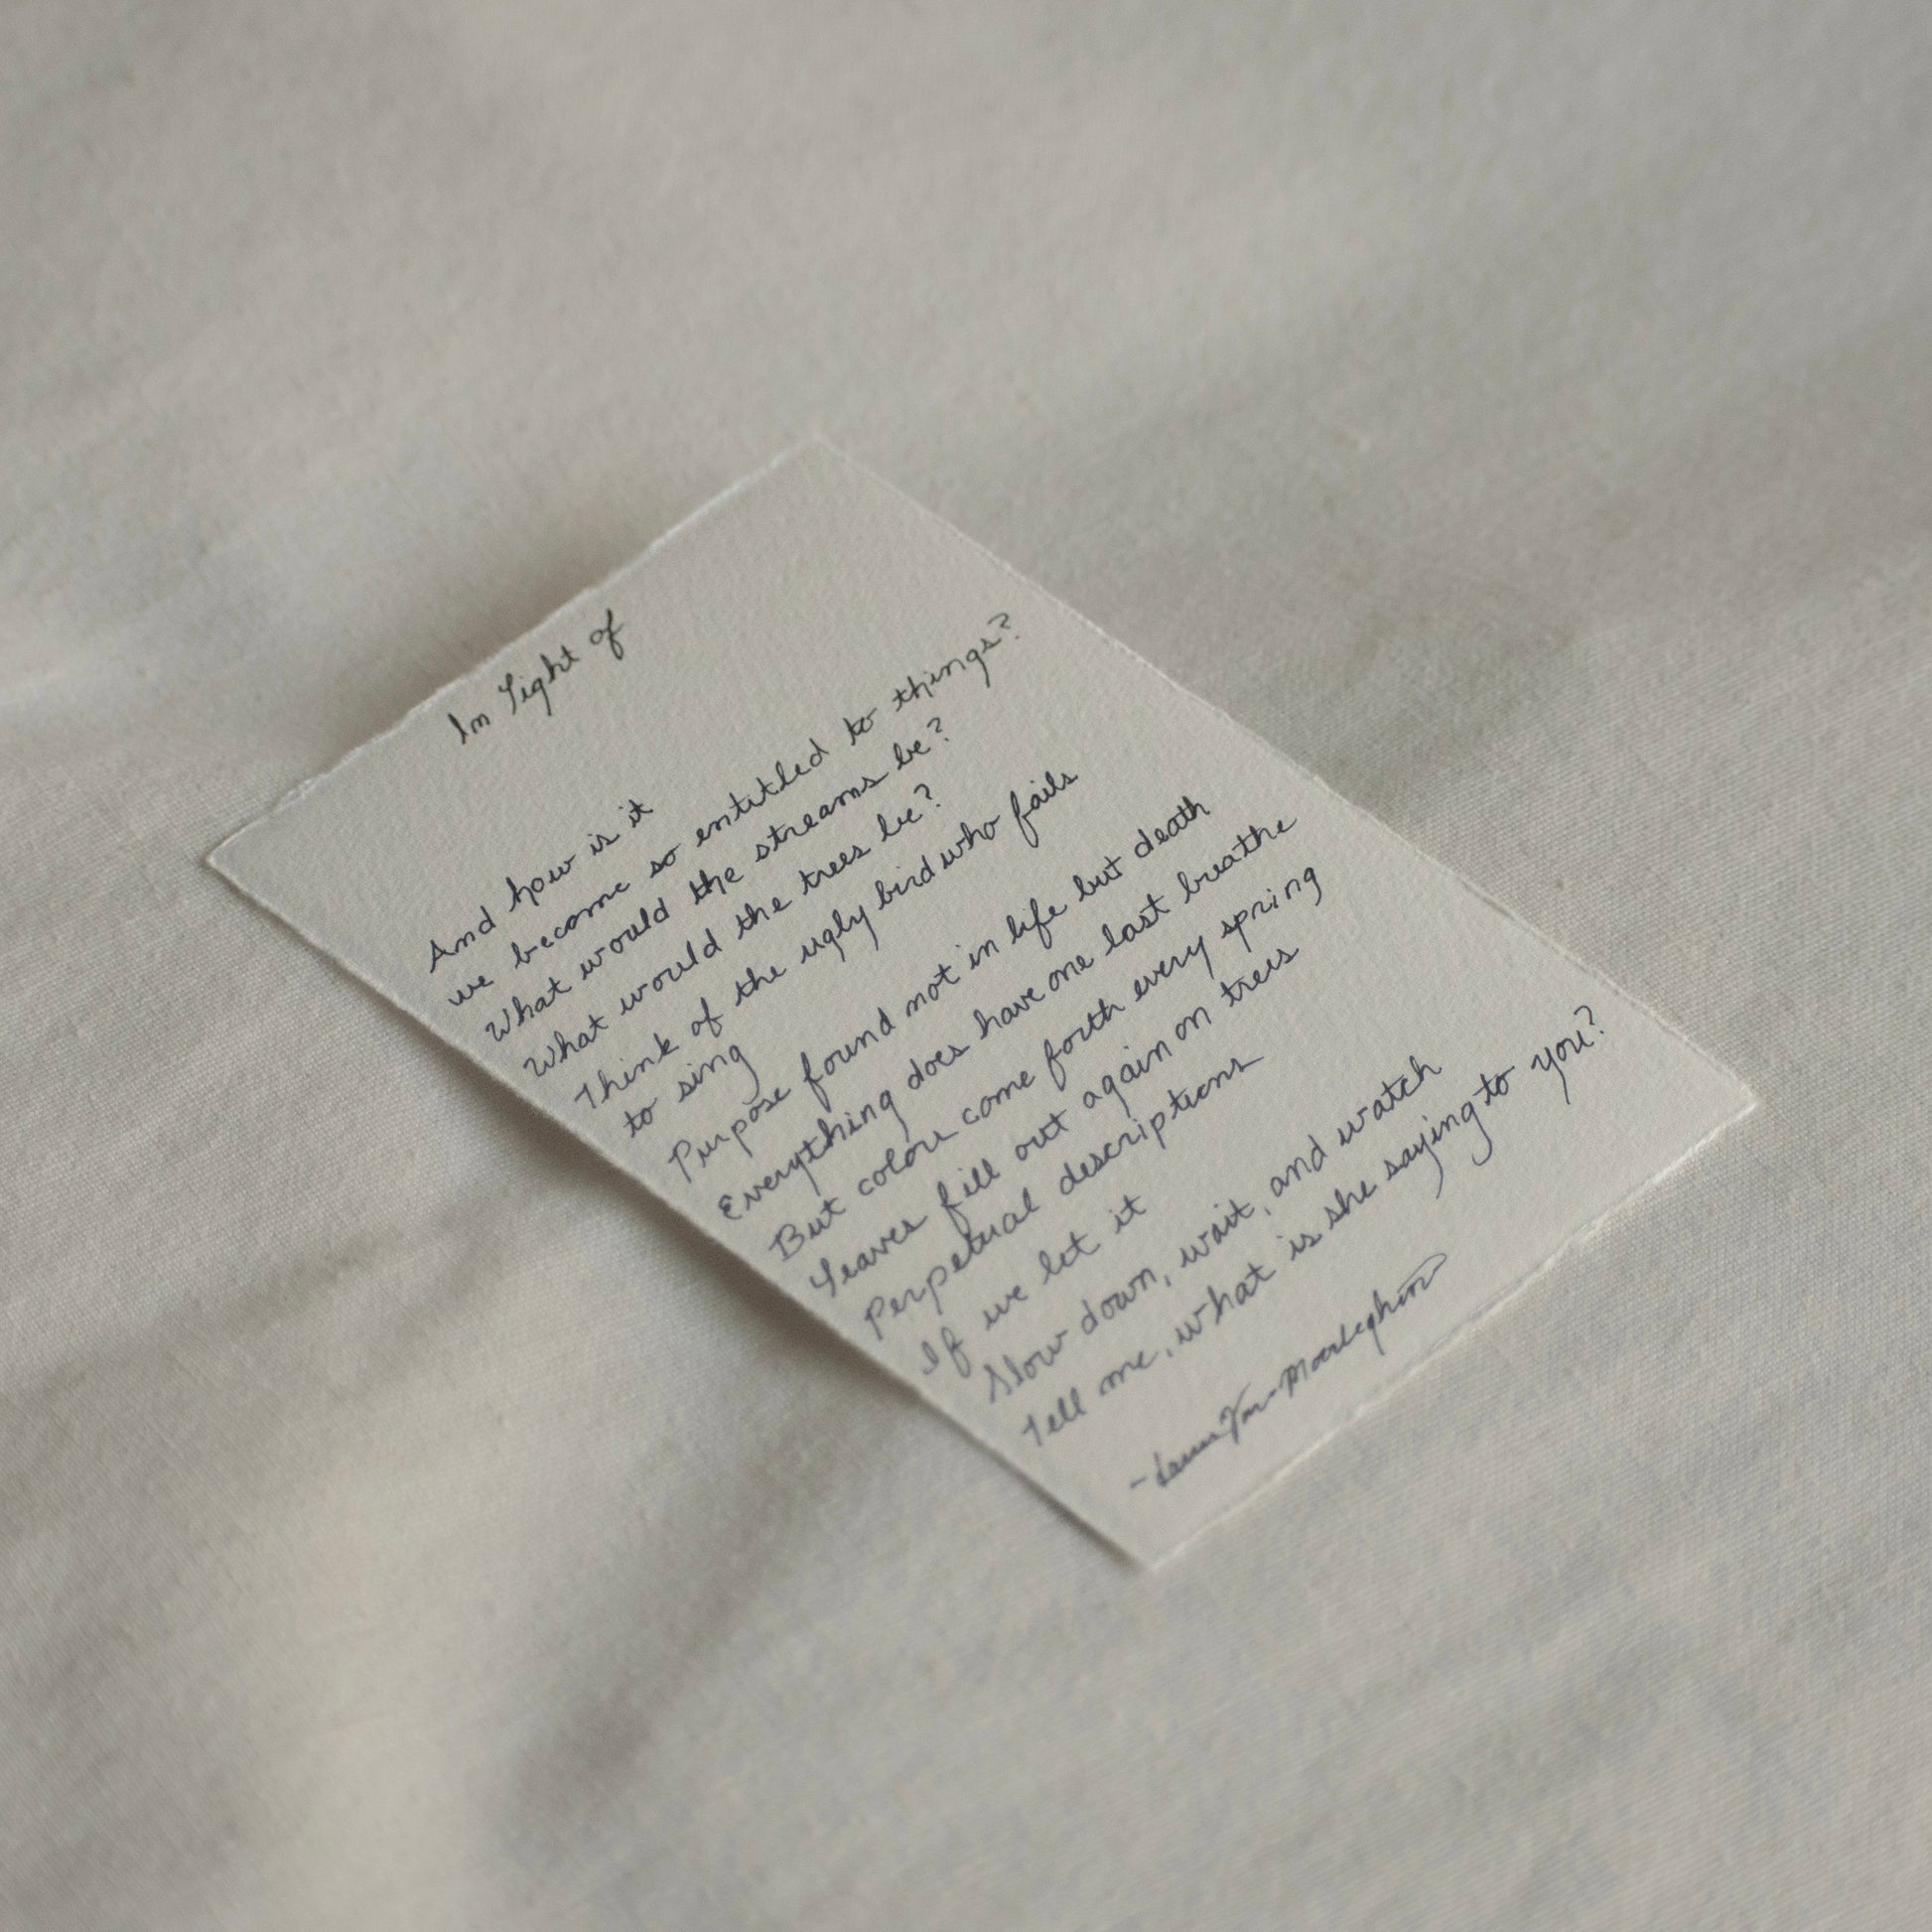 In Light of
And how is it
we become so entitled to things?
What would the streams be?
What would the trees be?
Think of the ugly bird who fails
to sing
Purpose found not in life but death
Everything does have one last breathe
But colour come forth every spring
Leaves fill out again on trees
Perpetual descriptions
If we let it
Slow down, wait, and watch
Tell me, what is she saying to you?